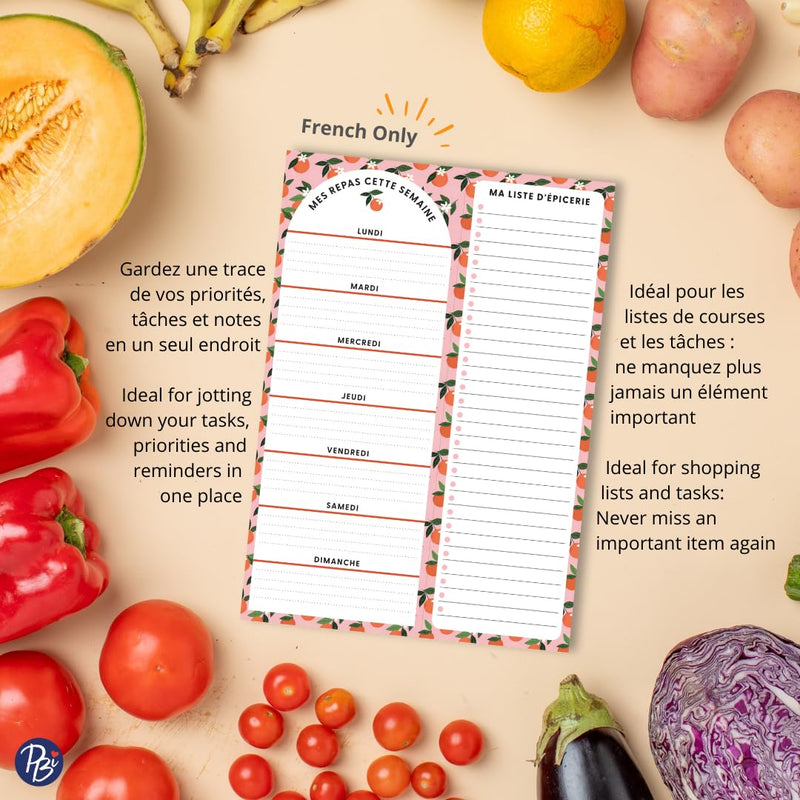 French Only
MES REPAS CETTE SEMAINE
LUNDI
MARDI
MERCREDI
JEUDI
VENDREDI
SAMEDI
DIMANCHE
MA LISTE D'ÉPICERIE
Gardez une trace
de vos priorités,
tâches et notes
en un seul endroit
Ideal for jotting
down your tasks,
priorities and
reminders in
one place
Idéal pour les
listes de courses
et les tâches :
ne manquez plus
jamais un élément
important
Ideal for shopping
lists and tasks:
Never miss an
important item again
PBi